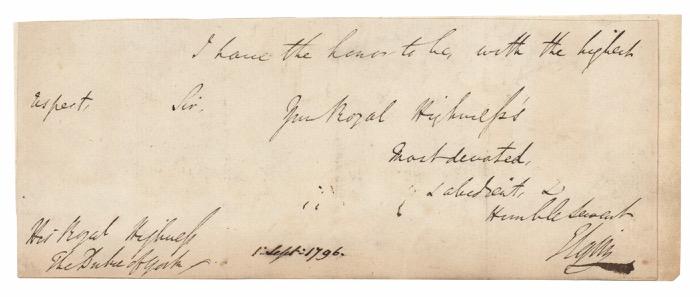 I have the honor to be, with the highest
respect, Sir,
Your Royal Highness's
Most devoted,
& obedient, &
Humble Servant
Elgin
His Royal Highness
The Duke of York
1: Sept: 1796.